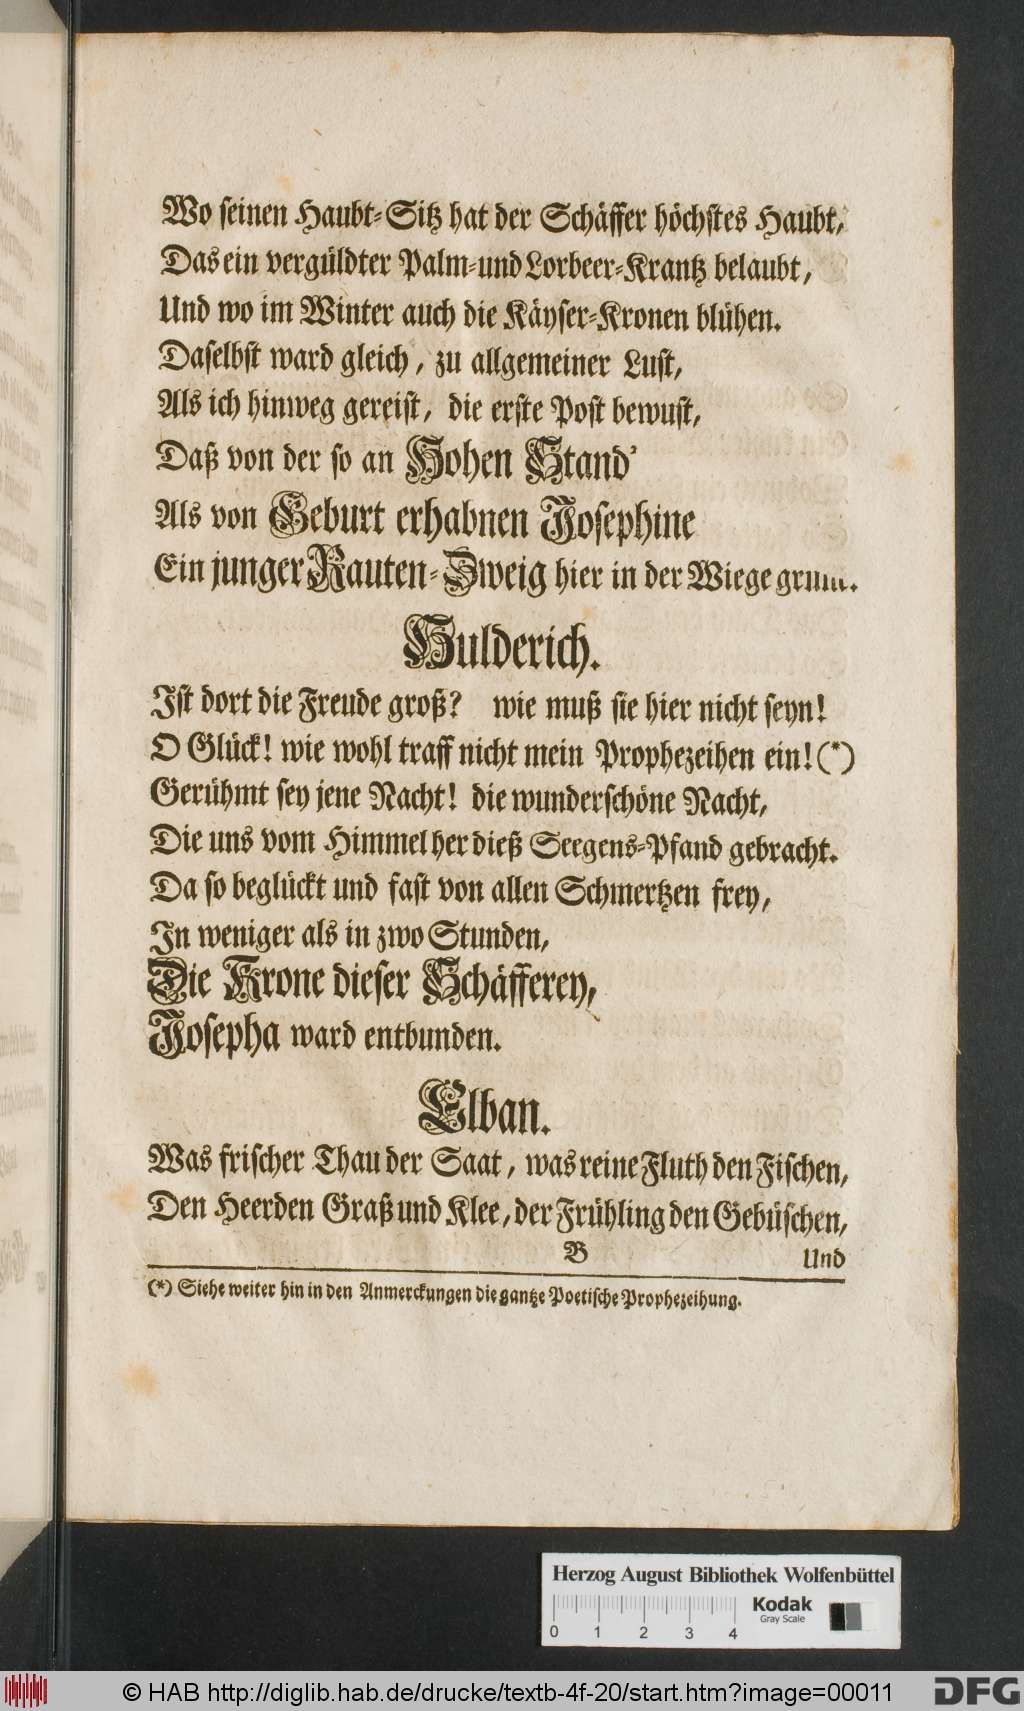 Wo seinen Haubt-Sitz hat der Schäffer höchstes Haubt,
Das ein vergüldter Palm-und Lorbeer-Krantz belaubt,
Und wo im Winter auch die Käyser-Kronen blühen.
Daselbst ward gleich, zu allgemeiner Lust,
Als ich hinweg gereist, die erste Post bewust,
Daß von der so an Hohen Stand'
Als von Geburt erhabnen Josephine
Ein junger Rauten-Zweig hier in der Wiege
Hulderich.
Ist dort die Freude groß? wie muß sie hier nicht seyn!
O Glück! wie wohl traff nicht mein Prophezeihen ein! (*)
Gerühmt sey jene Nacht! die wunderschöne Nacht,
Die uns vom Himmel her dieß Seegens-Pfand gebracht.
Da so beglückt und fast von allen Schmertzen frey,
In weniger als in zwo Stunden,
Die Krone dieser Schäfferey,
Josepha ward entbunden.
Elban.
Was frischer Thau der Saat, was reine Fluth den Fischen,
Den Heerden Graß und Klee, der Frühling den Gebüschen,
B Und
(*) Siehe weiter hin in den Anmerckungen die gantze Poetische Prophezeihung.
Herzog August Bibliothek Wolfenbüttel
Kodak
Gray Scale
0 1 2 3 4
© HAB http://diglib.hab.de/drucke/textb-4f-20/start.htm?image=00011
DFG